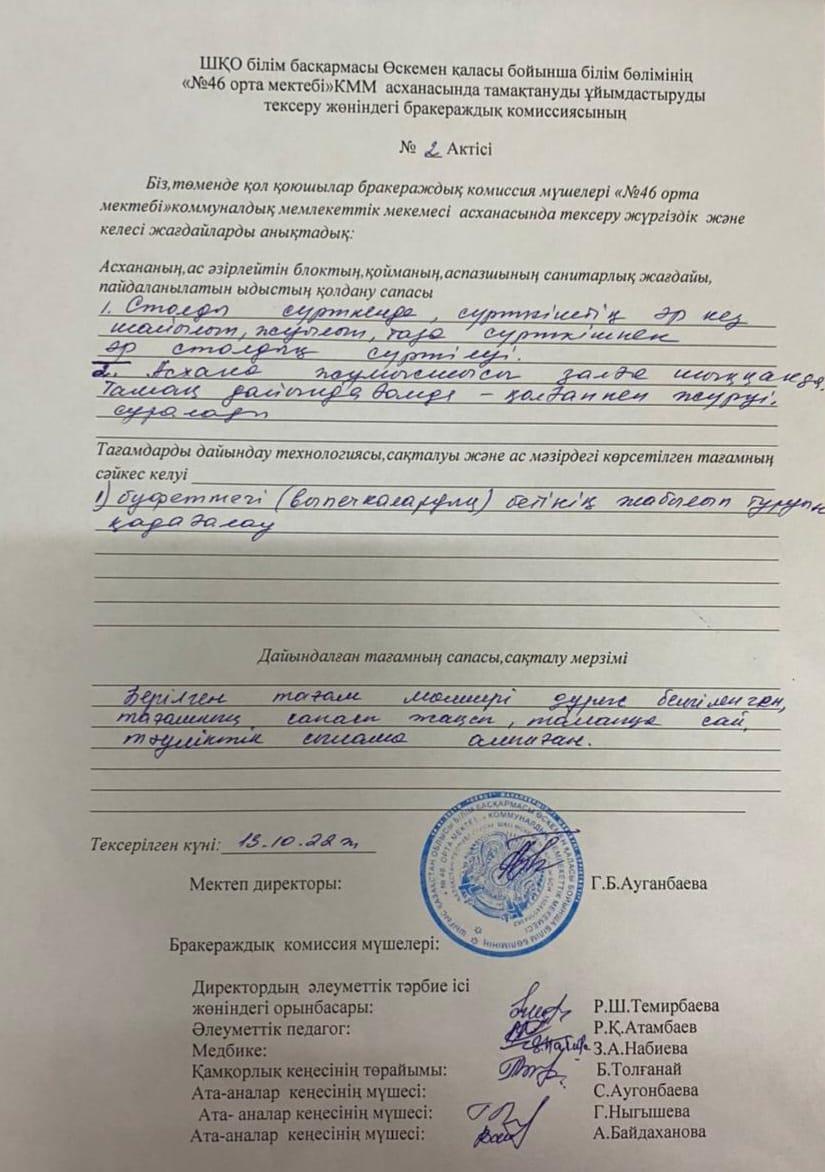 ШҚО білім басқармасы Өскемен қаласы бойынша білім бөлімінің
«№46 орта мектебі»КММ асханасында тамақтануды ұйымдастыруды
тексеру жөніндегі бракераждық комиссиясының
№ 2 Актісі
Біз,төменде қол қоюшылар бракераждық комиссия мүшелері «№46 орта
мектебі»коммуналдық мемлекеттік мекемесі асханасында тексеру жүргіздік және
келесі жағдайларды анықтадық:
Асхананың,ас әзірлейтін блоктың,қойманың,аспазшының санитарлық жағдайы,
пайдаланылатын ыдыстың қолдану сапасы
1. Столды сүрткенде, сүрткіштің әр кез
шайылып, жуылып, таза сүрткішпен
әр столдың сүртілуі.
2. Асхана жұмысшысы залға шыққанда,
Тамақ дайындағанда – қолғаппен жүруі,
сұралады
Тағамдарды дайындау технологиясы,сақталуы және ас мәзірдегі көрсетілген тағамның
сәйкес келуі
1) буфеттегі (выпечкалардың) бетінің жабылып тұруын
қадағалау
Дайындалған тағамның сапасы,сақталу мерзімі
Берілген тағам мөлшері дұрыс белгіленген,
тағамның сапасы жақсы, талапқа сай,
тәуліктік сынама алынған.
Тексерілген күні: 13.10.22ж
Мектеп директоры: Г.Б.Ауганбаева
Бракераждық комиссия мүшелері:
Директордың әлеуметтік тәрбие ісі
жөніндегі орынбасары: Р.Ш.Темирбаева
Әлеуметтік педагог: Р.Қ.Атамбаев
Медбике: З.А.Набиева
Қамқорлық кеңесінің төрайымы: Б.Толғанай
Ата-аналар кеңесінің мүшесі: С.Аугонбаева
Ата- аналар кеңесінің мүшесі: Г.Ныгышева
Ата-аналар кеңесінің мүшесі: А.Байдаханова